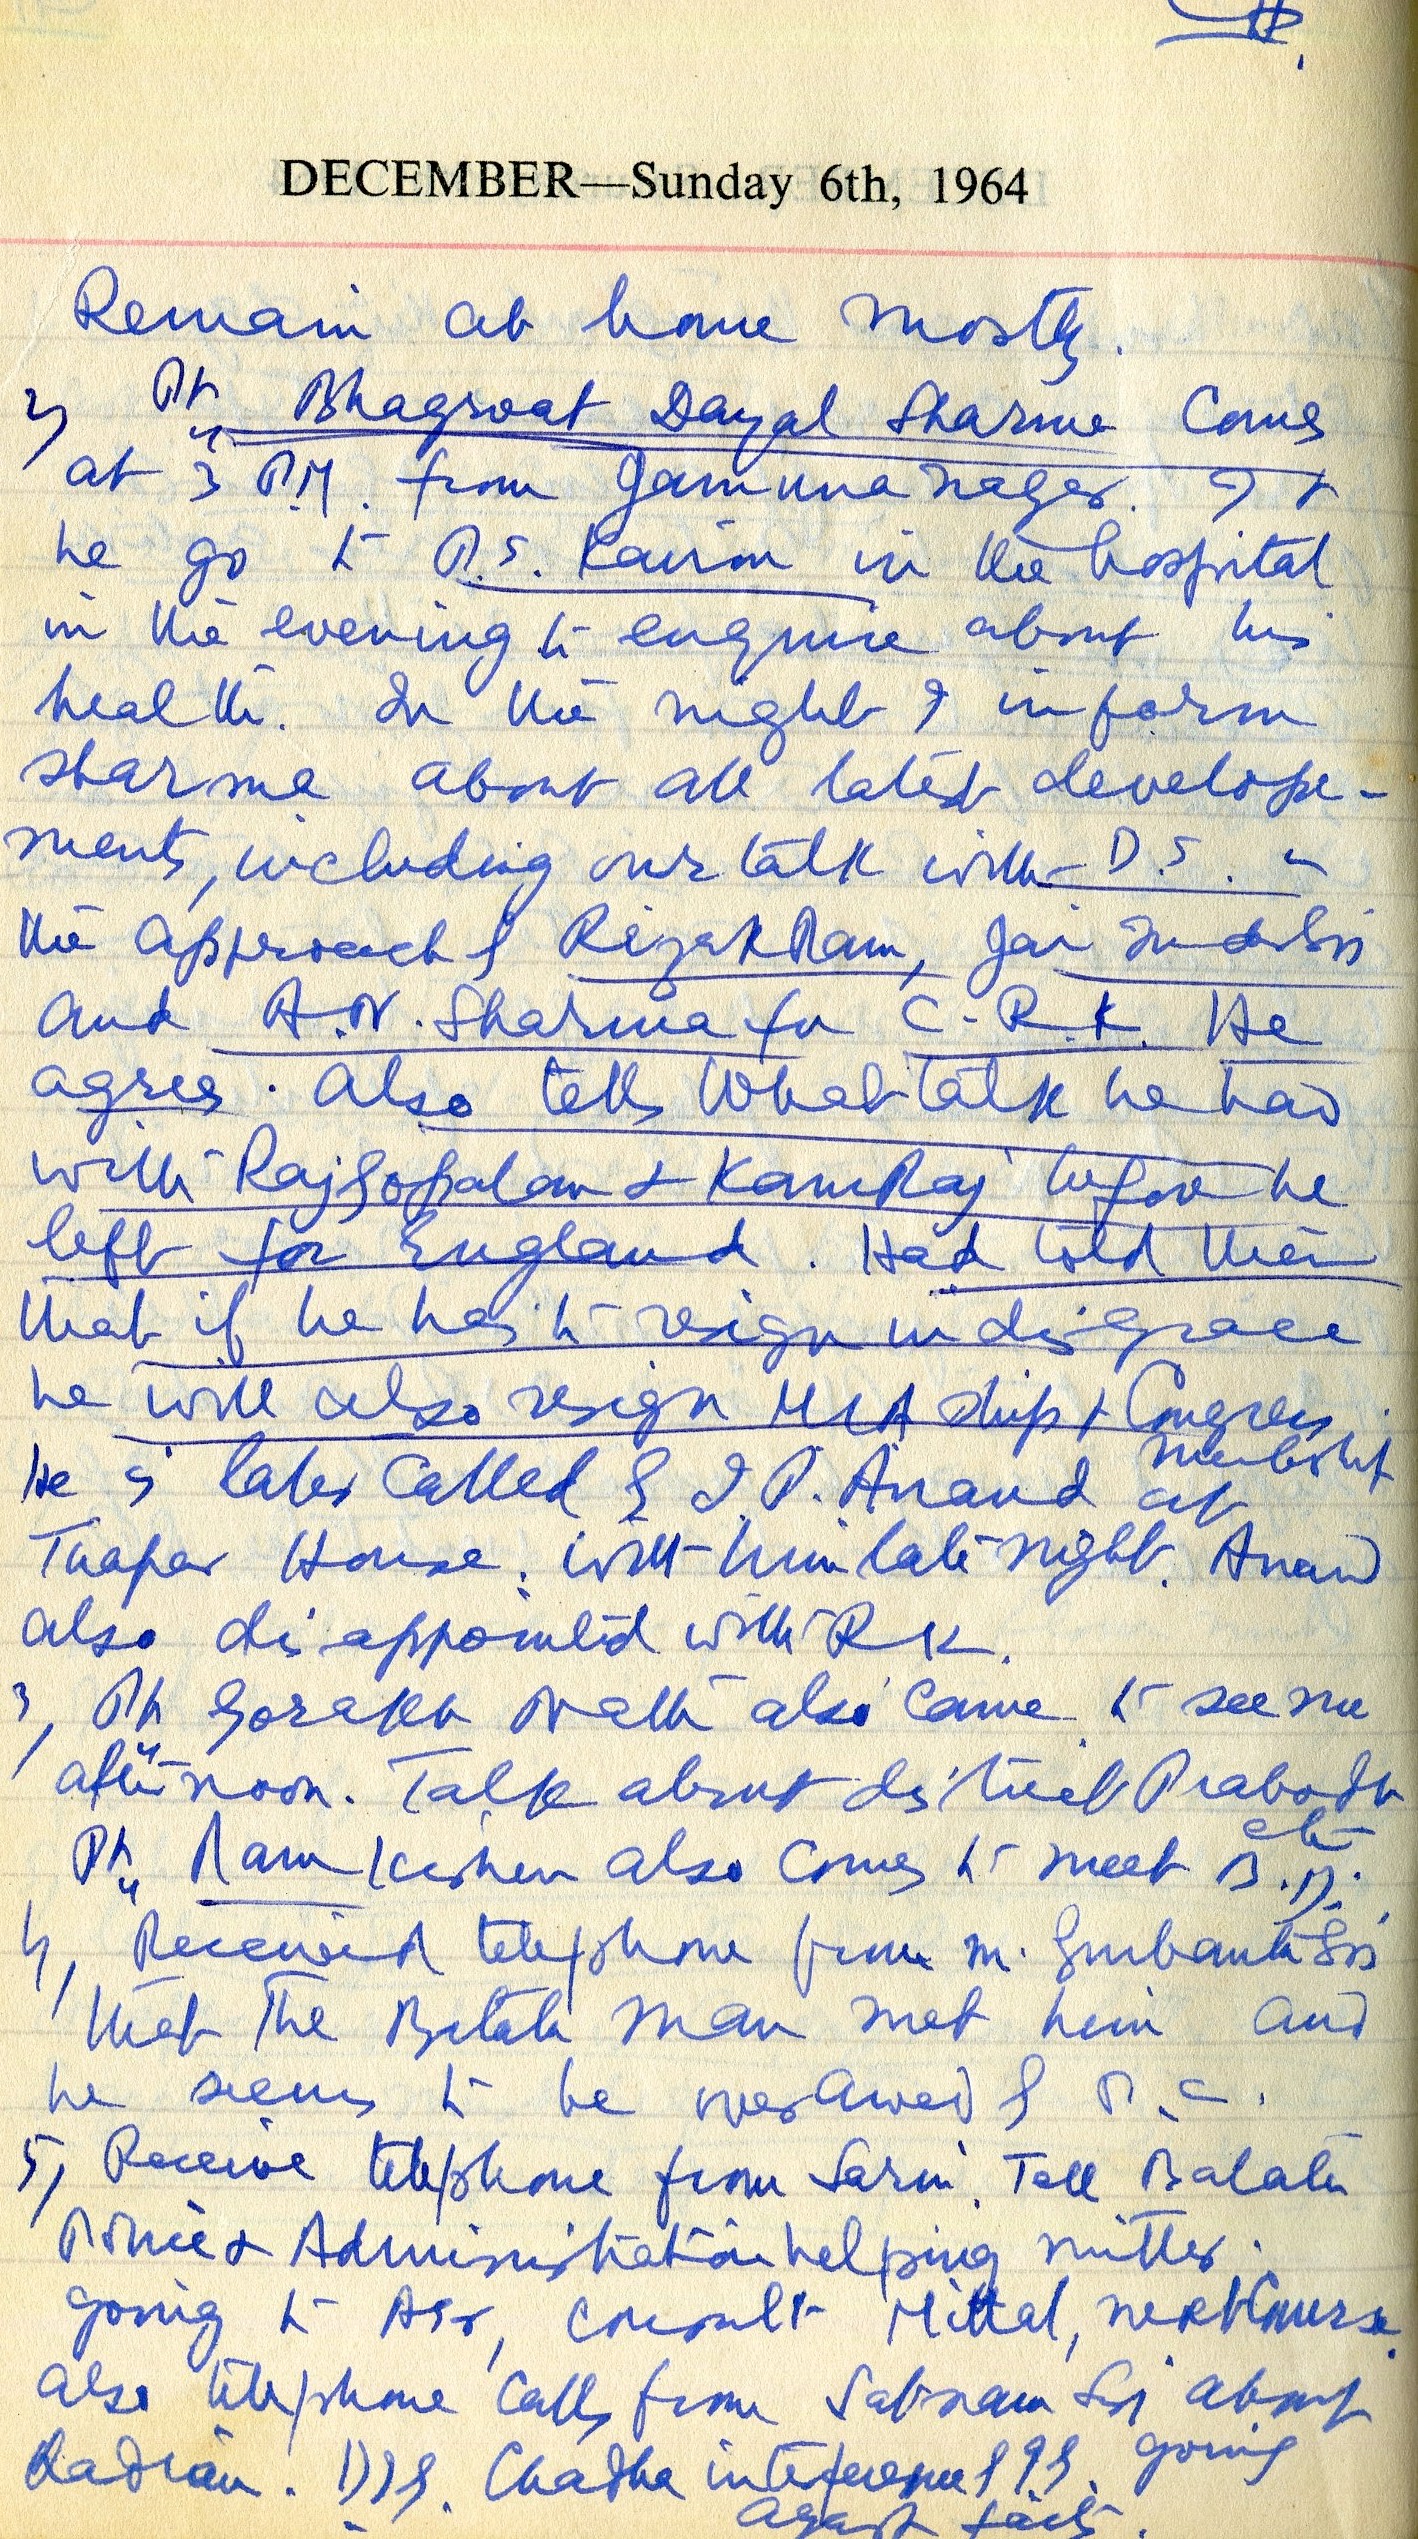 DECEMBER—Sunday 6th, 1964
Remain at home mostly.
2, Pt. Bhagwat Dayal Sharma Comes
at 3 P.M. from Jamuna nagar. I &
he go to P.S. Kairon in the hospital
in the evening to enquire about his
health. In the night I inform
Sharma about all latest develope-
ments, including our talk with D.S.
the approach of Rizak Ram, Jai Inder Sin
and A.N. Sharma for C.R.K. He
agrees. Also tells What talk he had
with Rajgopalan & KamRaj before he
left for England. Had told them
that if he has to resign in disgrace
he will also resign MLA ship & Congress
membership
He is later Called by I.P. Anand at
Thapar House. With him late night. Anand
also disappointed with R K.
3, Pt. Gorakh Nath also came to see me
afternoon. Talk about district Prabodh
etc
Pt. Ram Kishen also comes to meet B.D.
4, Received telephone from M. Gurbanta Sin
that The Batala man met him and
he seems to be overawed by P.C.
5, Receive telephone from Sarin. Tell Batala
Police & Administration helping mitter.
going to Asr, consult Mittal, next course.
also telephone calls from Satnam Sin about
Kadian. D.I.G. Chadha interference of I.G. going
against facts.